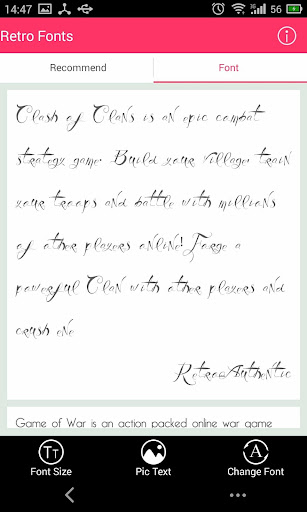 14:47 3G 56
Retro Fonts
Recommend Font
Clash of Clans is an epic combat
strategy game. Build your village, train
your troops and battle with millions
of other players online! Forge a
powerful Clan with other players and
crush ene
RetroAuthentic
Game of War is an action packed online war game
Font Size Pic Text Change Font